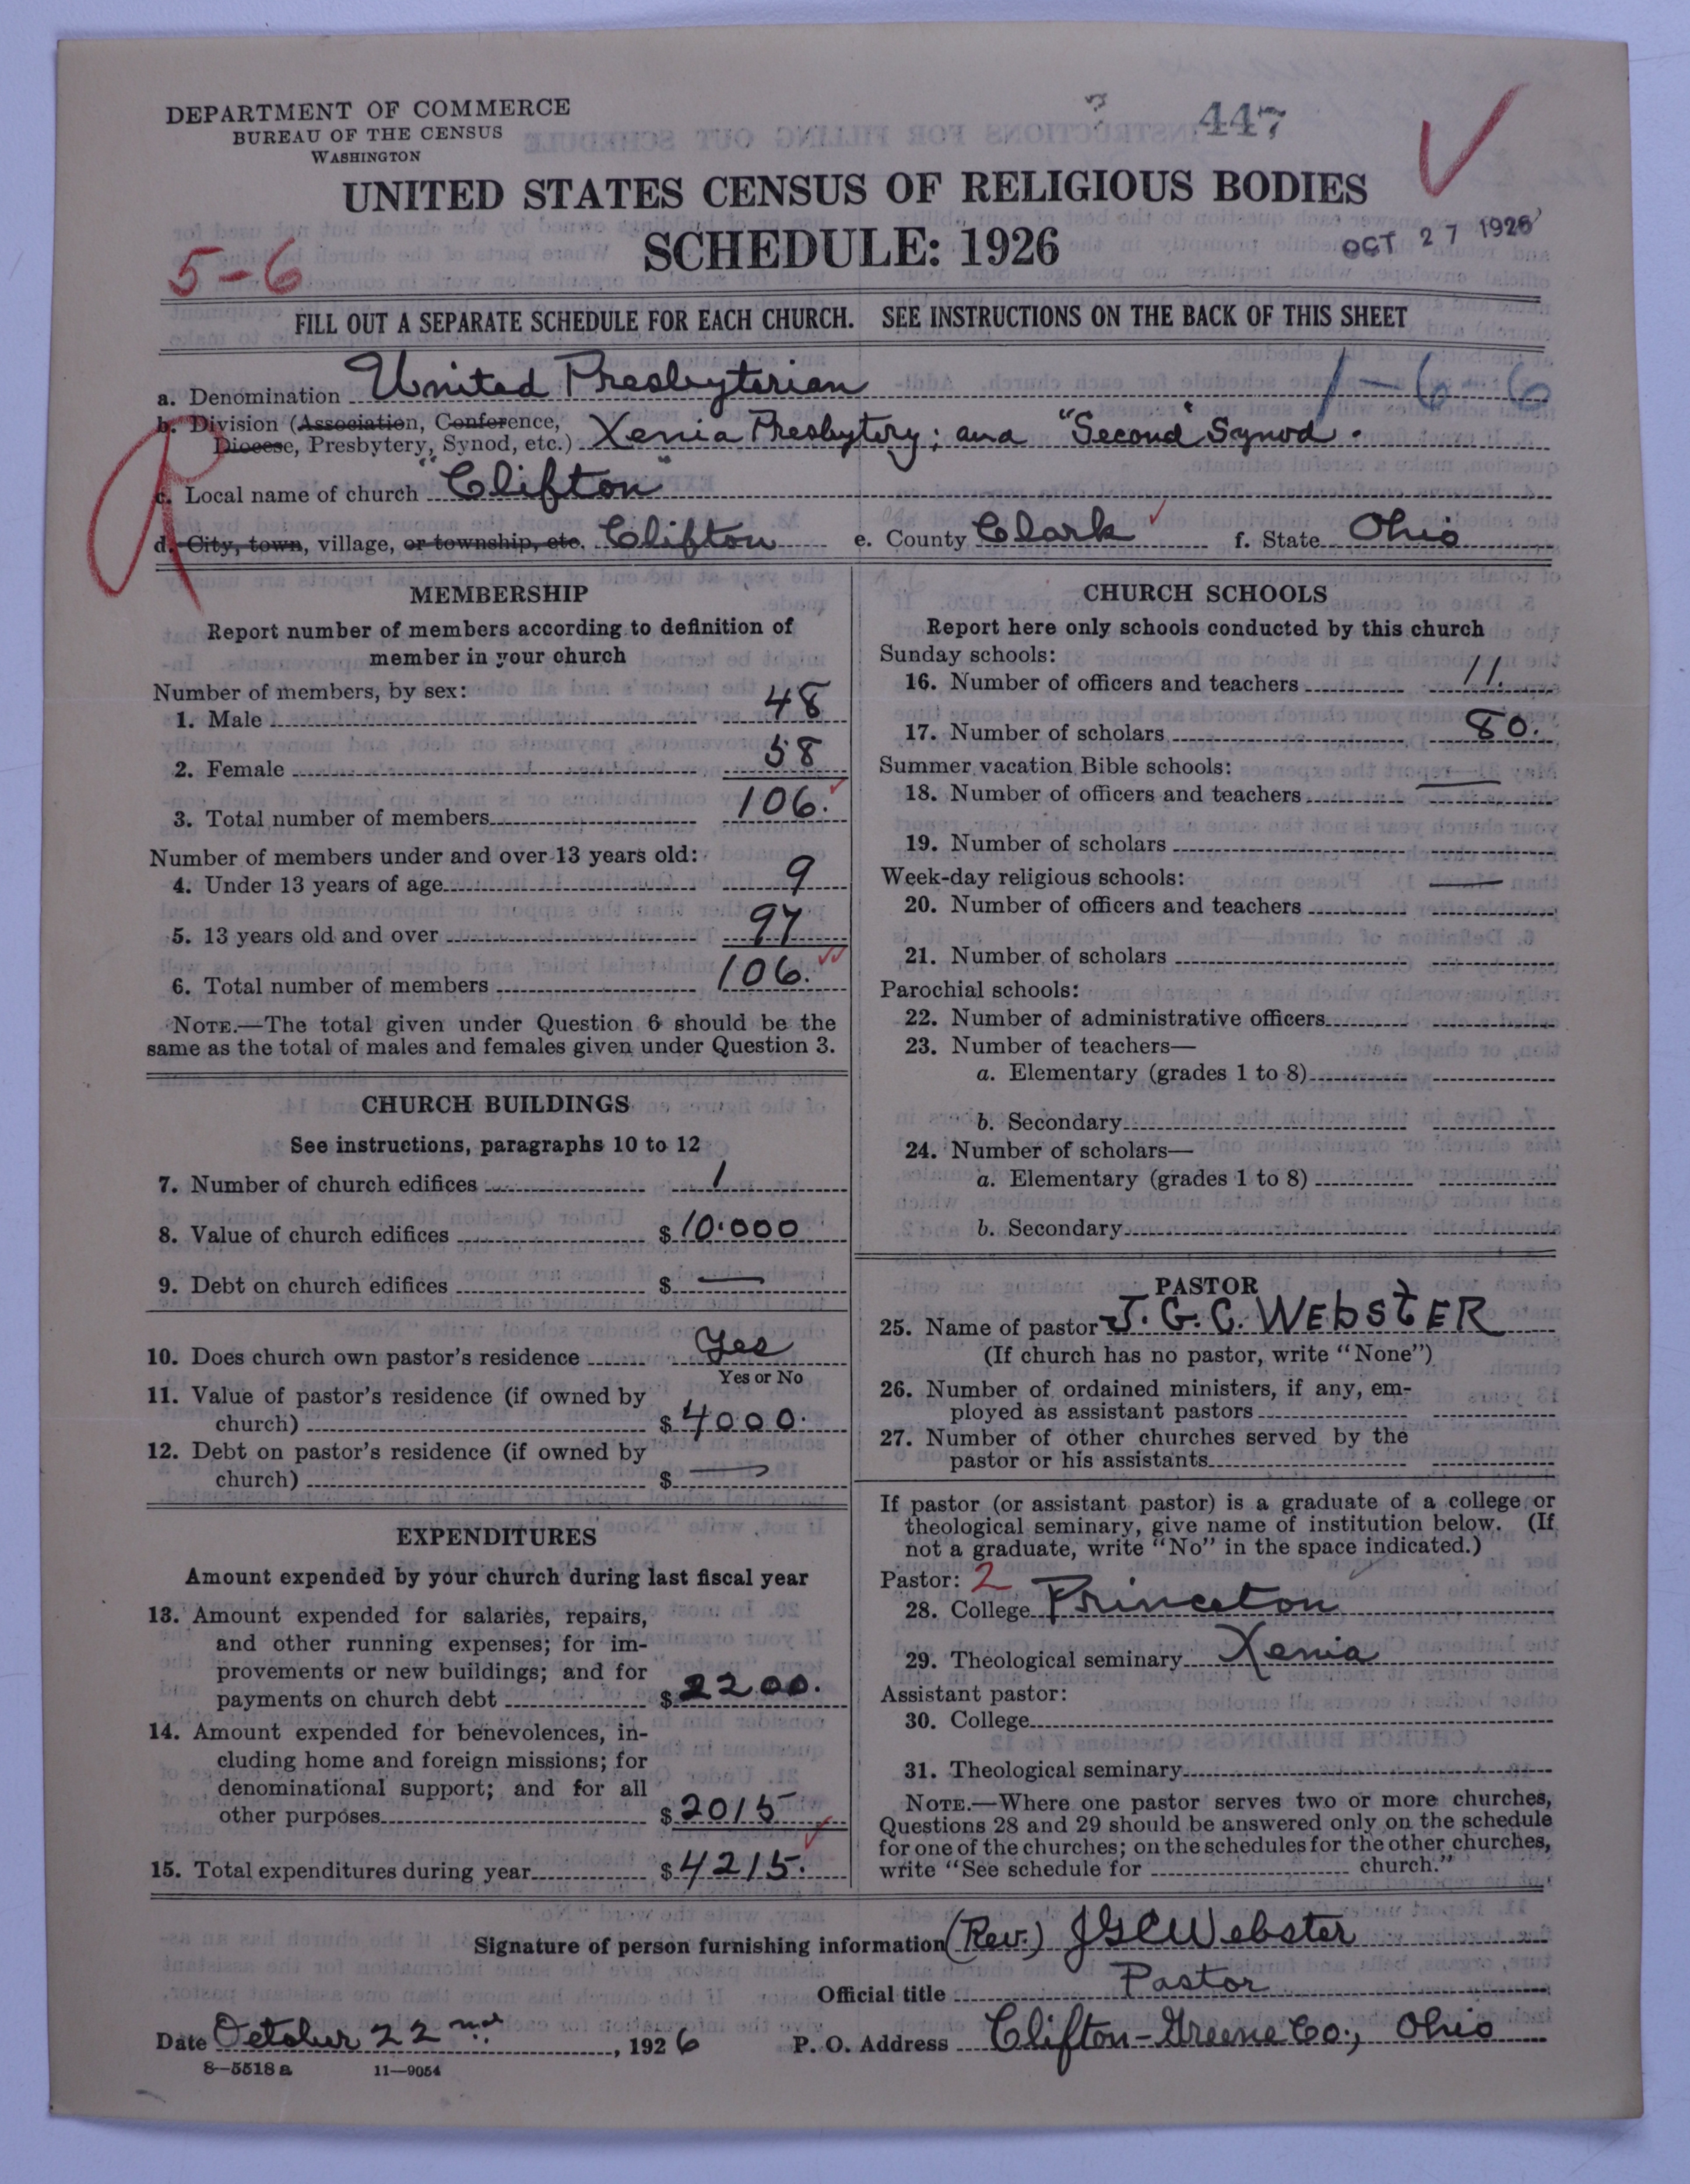 DEPARTMENT OF COMMERCE
BUREAU OF THE CENSUS
WASHINGTON
447
UNITED STATES CENSUS OF RELIGIOUS BODIES
SCHEDULE: 1926
OCT 27 1926
5-6
FILL OUT A SEPARATE SCHEDULE FOR EACH CHURCH. SEE INSTRUCTIONS ON THE BACK OF THIS SHEET
1-6-6
a. Denomination United Presbyterian
b. Division (Association, Conference,
Diocese, Presbytery, Synod, etc.) Xenia Presbytery; and "Second" Synod.
c. Local name of church "Clifton"
d. City, town, village, or township, etc. Clifton e. County Clark f. State Ohio
MEMBERSHIP
Report number of members according to definition of
member in your church
Number of members, by sex:
1. Male 48
2. Female 58
3. Total number of members 106.
Number of members under and over 13 years old:
4. Under 13 years of age 9
5. 13 years old and over 97
6. Total number of members 106.
NOTE.—The total given under Question 6 should be the
same as the total of males and females given under Question 3.
CHURCH BUILDINGS
See instructions, paragraphs 10 to 12
7. Number of church edifices 1
8. Value of church edifices $10.000
9. Debt on church edifices $ —
10. Does church own pastor's residence Yes
Yes or No
11. Value of pastor's residence (if owned by
church) $4000.
12. Debt on pastor's residence (if owned by
church) $ —
EXPENDITURES
Amount expended by your church during last fiscal year
13. Amount expended for salaries, repairs,
and other running expenses; for im-
provements or new buildings; and for
payments on church debt $2200.
14. Amount expended for benevolences, in-
cluding home and foreign missions; for
denominational support; and for all
other purposes $2015
15. Total expenditures during year $4215.
CHURCH SCHOOLS
Report here only schools conducted by this church
Sunday schools:
16. Number of officers and teachers 11.
17. Number of scholars 80.
Summer vacation Bible schools: —
18. Number of officers and teachers
19. Number of scholars
Week-day religious schools: —
20. Number of officers and teachers
21. Number of scholars
Parochial schools:
22. Number of administrative officers
23. Number of teachers—
a. Elementary (grades 1 to 8)
b. Secondary
24. Number of scholars—
a. Elementary (grades 1 to 8)
b. Secondary
PASTOR
25. Name of pastor J. G. C. WEBSTER
(If church has no pastor, write "None")
26. Number of ordained ministers, if any, em-
ployed as assistant pastors
27. Number of other churches served by the
pastor or his assistants
If pastor (or assistant pastor) is a graduate of a college or
theological seminary, give name of institution below. (If
not a graduate, write "No" in the space indicated.)
Pastor: 2
28. College Princeton
29. Theological seminary Xenia
Assistant pastor:
30. College
31. Theological seminary
NOTE.—Where one pastor serves two or more churches,
Questions 28 and 29 should be answered only on the schedule
for one of the churches; on the schedules for the other churches,
write "See schedule for church."
Signature of person furnishing information (Rev.) JGCWebster
Official title Pastor
Date October 22nd, 1926 P. O. Address Clifton-Greene Co., Ohio
8—5518a 11—9054